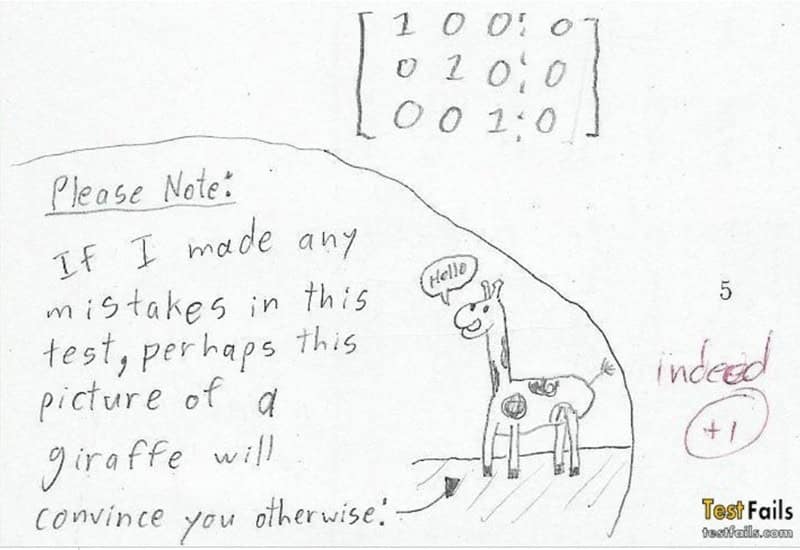 1 0 0 0
0 1 0 0
0 0 1 0
Please Note:
If I made any
mistakes in this
test, perhaps this
picture of a
giraffe will
convince you otherwise:
Hello
5
indeed
+1
TestFails
testfails.com